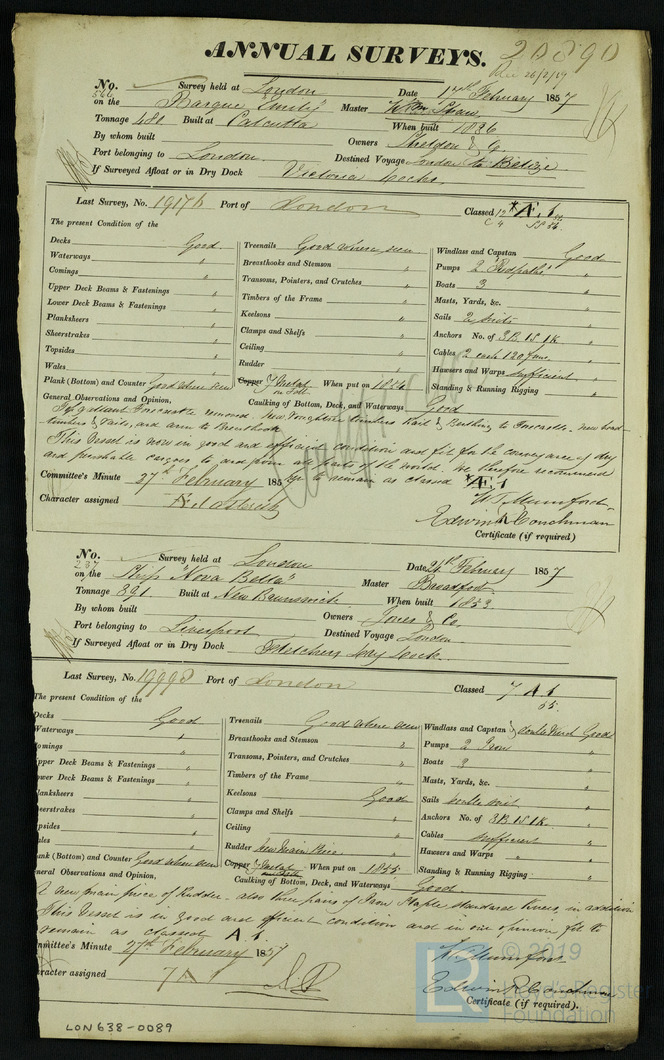 ANNUAL SURVEYS. 20890
No. Survey held at London Date February 1857
566 on the Barque Master Wm Shaw
Tonnage 481 Built at Calcutta When built 1836
By whom built Owners Sheldon & Co.
Port belonging to London Destined Voyage London to Belize
If Surveyed Afloat or in Dry Dock Victoria Docks
Last Survey, No. 19176 Port of London Classed
The present Condition of the
Decks Good
Waterways "
Comings "
Upper Deck Beams & Fastenings "
Lower Deck Beams & Fastenings "
Planksheers "
Sheerstrakes "
Topsides "
Wales "
Plank (Bottom) and Counter Good where seen
Treenails Good where seen
Breasthooks and Stemson "
Transoms, Pointers, and Crutches "
Timbers of the Frame "
Keelsons "
Clamps and Shelfs "
Ceiling "
Rudder "
Copper Y Metal on Felt When put on 1856
Caulking of Bottom, Deck, and Waterways Good
Windlass and Capstan Good
Pumps 2 Redpaths "
Boats 3 "
Masts, Yards, &c. "
Sails 2 suits "
Anchors No. of 3B 1S 1K "
Cables 2 each 120 fms. "
Hawsers and Warps sufficient "
Standing & Running Rigging "
General Observations and Opinion,
Top gallant Forecastle removed New Knightheads timbers Rail & Berthing to Forecastle, New head
timbers & rails, and
This Vessel is now in good and efficient condition and fit for the conveyance of dry
and perishable cargoes to and from all parts of the world. We therefore recommend
her to remain as classed Æ 1
Committee's Minute 27th February 1857
Character assigned
W. Mumford
Edwin R Couchman
Certificate (if required)
No. Survey held at London Date 24th February 1857
237 on the Ship "Nova Bella" Master Broadfoot
Tonnage 891 Built at New Brunswick When built 1853
By whom built Owners Jones & Co.
Port belonging to Liverpool Destined Voyage London
If Surveyed Afloat or in Dry Dock Fletchers Dry Dock
Last Survey, No. 19998 Port of London Classed 7 A 1
55.
The present Condition of the
Decks Good
Waterways "
omings "
pper Deck Beams & Fastenings "
ower Deck Beams & Fastenings "
lanksheers "
heerstrakes "
psides "
ales "
ank (Bottom) and Counter Good where seen
Treenails Good where seen
Breasthooks and Stemson "
Transoms, Pointers, and Crutches "
Timbers of the Frame "
Keelsons Good
Clamps and Shelfs "
Ceiling "
Rudder New Main Piece
Copper Y Metal When put on 1855
Caulking of Bottom, Deck, and Waterways Good
Windlass and Capstan Good
Pumps 2 Iron "
Boats 3 "
Masts, Yards, &c. "
Sails "
Anchors No. of 3B 1S 1K "
Cables sufficient "
Hawsers and Warps "
Standing & Running Rigging "
neral Observations and Opinion,
A new main piece of Rudder, also three pairs of Iron Staple standard Knees, in addition
This Vessel is in good and efficient condition and in our opinion fit to
remain as classed A 1
mmittee's Minute 27th February 1857
racter assigned 7 A 1
W. Mumford
Edwin R Couchman
Certificate (if required).
LON638-0089
© 2019
LR
Lloyd's Register
Foundation